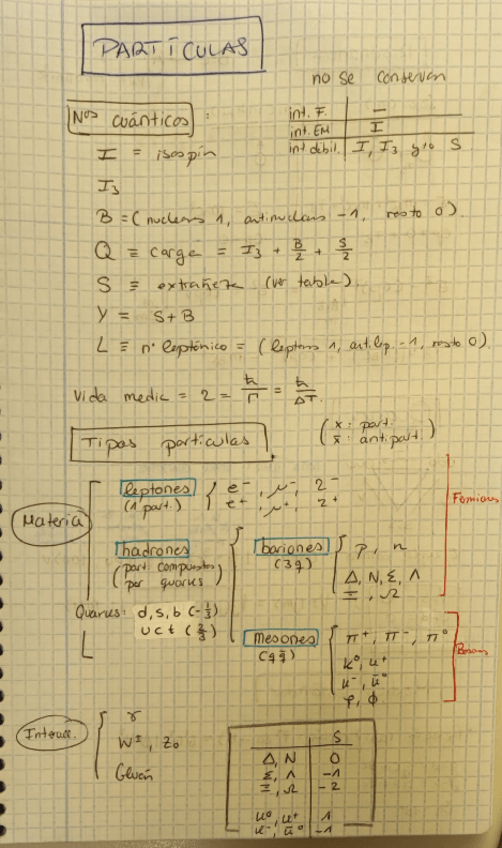 PARTÍCULAS
no se conservan
Nos cuánticos:
int. F. —
int. EM I
int débil. I, I3 y/o S
I ≡ isospín
I3
B = (nucleons 1, antinucleons -1, resto 0).
Q ≡ carga = I3 + B/2 + S/2
S ≡ extrañeza (ver tabla).
Y = S + B
L ≡ nº leptónico = (leptons 1, antilep. -1, resto 0).
Vida media = τ = ħ/Γ = ħ/ΔT.
Tipos partículas.
(x: part.
x̄: antipart.)
Materia
leptones
(1 part.)
e⁻, μ⁻, τ⁻
e⁺, μ⁺, τ⁺
Fermions
hadrones
(part. compuestas
por quarks)
bariones
(3q)
p, n
Δ, N, Σ, Λ
Ξ, Ω
Quarks: d, s, b (-1/3)
u c t (2/3)
mesones
(q q̄)
π⁺, π⁻, π⁰
k⁰, k⁺
k⁻, k̄⁰
φ
Bosons
Interacc.
γ
W±, Z0
Gluón
S
Δ, N 0
Σ, Λ -1
Ξ, Ω -2
k⁰, k⁺ 1
k⁻, k̄⁰ -1